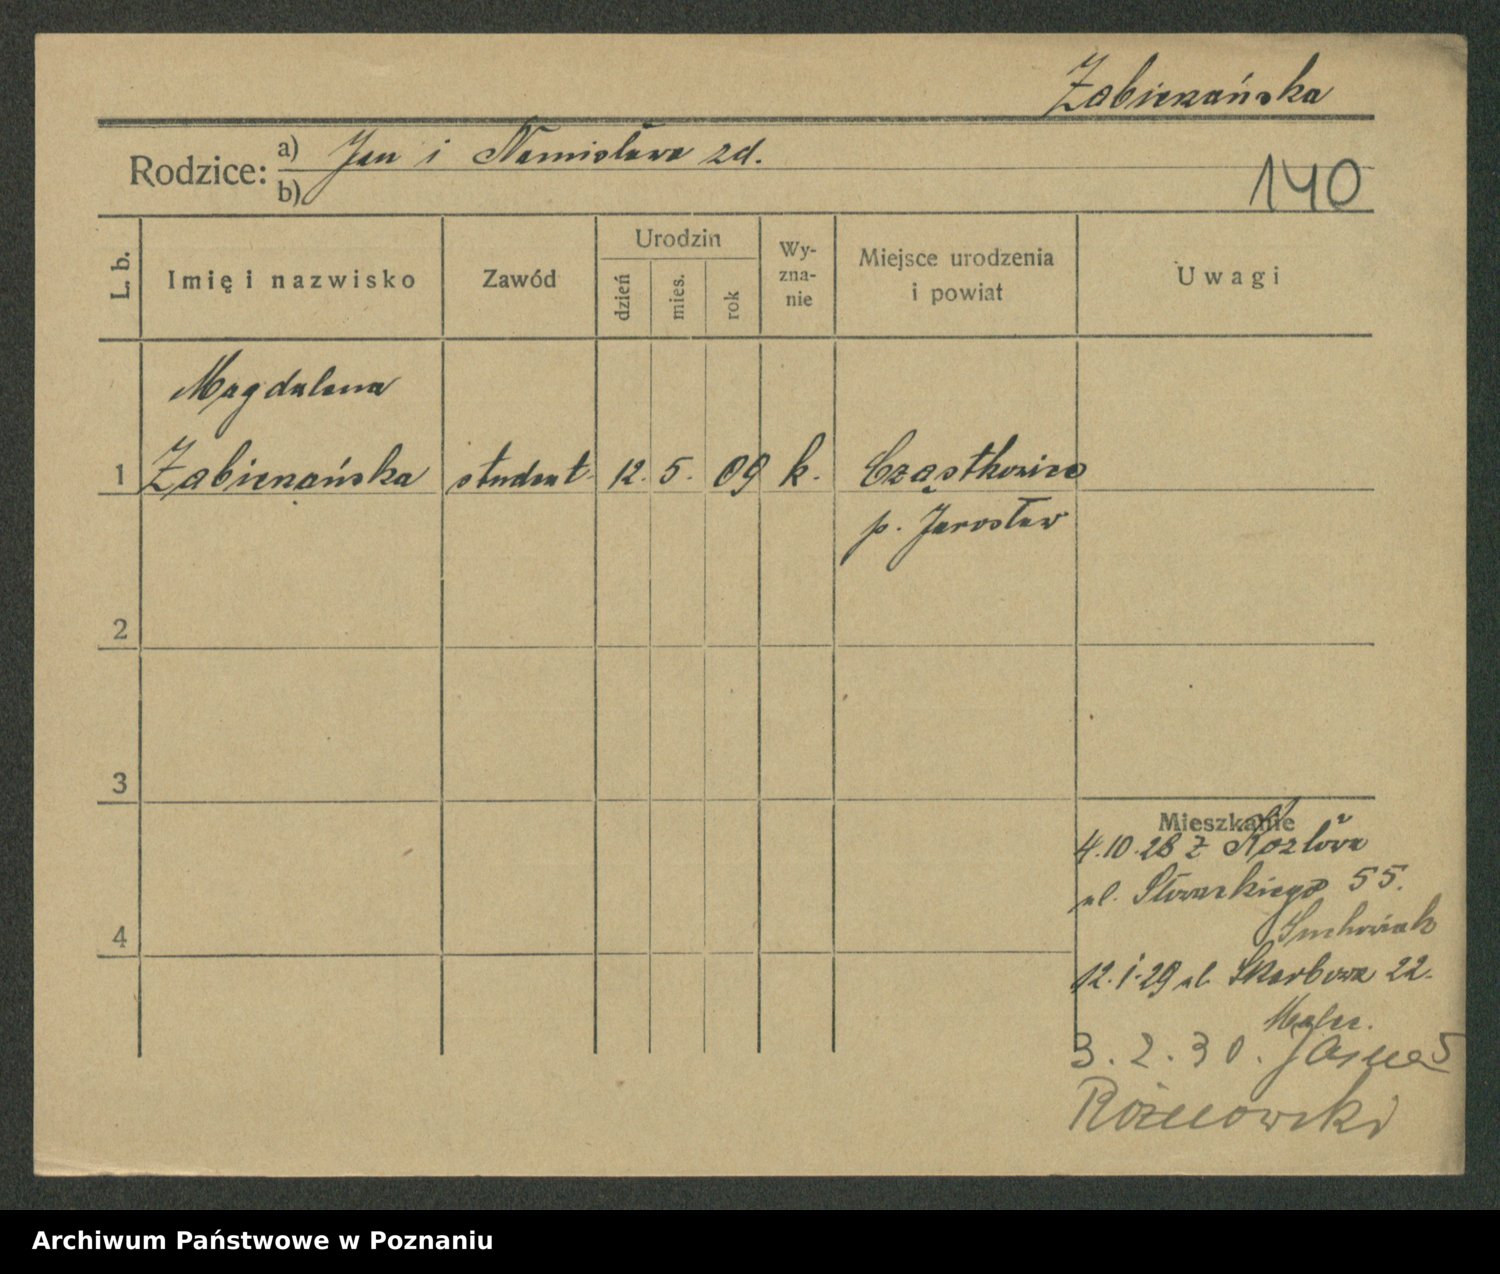 Zabierzańska
Rodzice: a) Jan i Stanisława zd.
b)
140
L. b.
Imię i nazwisko
Zawód
Urodzin
dzień
mies.
rok
Wy-
zna-
nie
Miejsce urodzenia
i powiat
Uwagi
Magdalena
1 Zabierzańska student 12. 5. 09 k. Cząstkowice
p. Jarosław
2
3
Mieszkanie
4.10.28 z
ul. Słowackiego 55.
4
12.1.29 ul. Skarbowa 22.
3.2.30. Jasna 5
Rożnowski
Archiwum Państwowe w Poznaniu